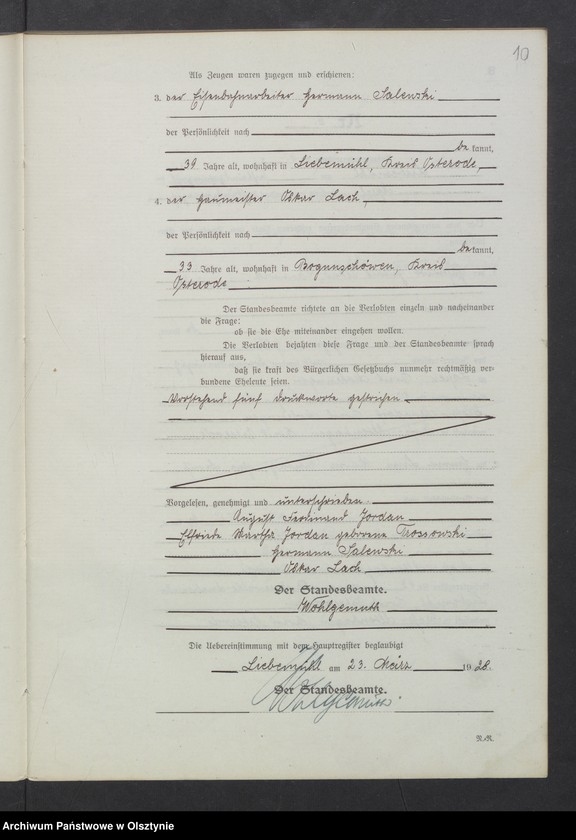 10
Als Zeugen waren zugegen und erschienen:
3. der Eisenbahnarbeiter Hermann Salewski
der Persönlichkeit nach
be kannt,
39 Jahre alt, wohnhaft in Liebemühl, Kreis Osterode,
4. der Haumeister Oskar Lach,
der Persönlichkeit nach
be kannt,
33 Jahre alt, wohnhaft in Bogunschöwen, Kreis
Osterode
Der Standesbeamte richtete an die Verlobten einzeln und nacheinander
die Frage:
ob sie die Ehe miteinander eingehen wollen.
Die Verlobten bejahten diese Frage und der Standesbeamte sprach
hierauf aus,
daß sie kraft des Bürgerlichen Gesetzbuchs nunmehr rechtmäßig ver-
bundene Eheleute seien.
Vorstehend fünf Druckworte gestrichen.
Vorgelesen, genehmigt und unterschrieben
August Ferdinand Jordan
Elfriede Martha Jordan geborene Trossowski
Hermann Salewski
Oskar Lach
Der Standesbeamte.
Wohlgemuth
Die Uebereinstimmung mit dem Hauptregister beglaubigt
Liebemühl am 23. März 1928.
Der Standesbeamte.
Wohlgemuth
R.-R.
Archiwum Państwowe w Olsztynie